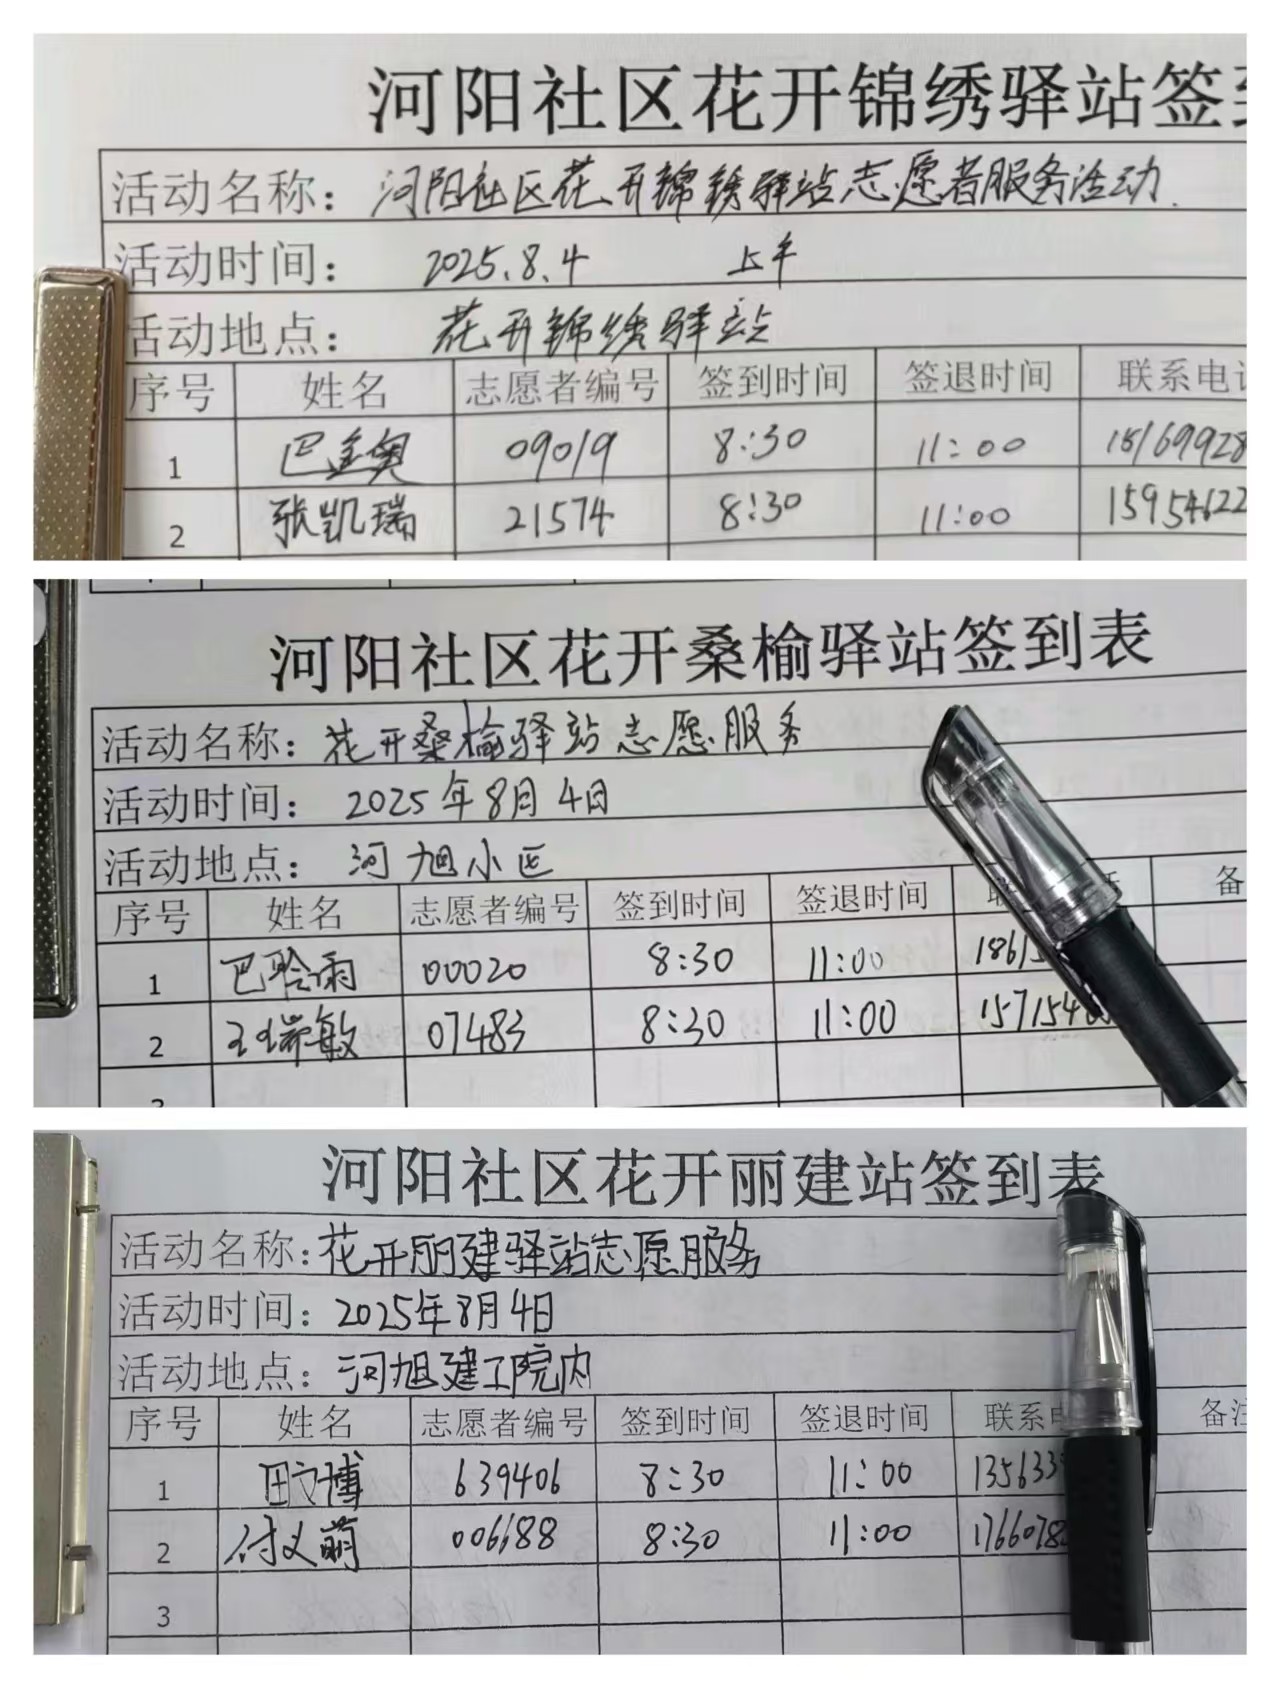 河阳社区花开锦绣驿站签到
活动名称：河阳社区花开锦绣驿站志愿者服务活动.
活动时间： 2025.8.4 上午
活动地点： 花开锦绣驿站
序号 姓名 志愿者编号 签到时间 签退时间 联系电话
1 巴金奥 09019 8:30 11:00 15169928
2 张凯瑞 21574 8:30 11:00 15954622
河阳社区花开桑榆驿站签到表
活动名称：花开桑榆驿站志愿服务
活动时间： 2025年8月4日
活动地点： 河旭小区
序号 姓名 志愿者编号 签到时间 签退时间 联 话 备
1 巴聆雨 00020 8:30 11:00 1861
2 王瑞敏 07483 8:30 11:00 157154
河阳社区花开丽建站签到表
活动名称：花开丽建驿站志愿服务
活动时间：2025年8月4日
活动地点：河旭建工院内
序号 姓名 志愿者编号 签到时间 签退时间 联系电 备注
1 田文博 639406 8:30 11:00 135633
2 付义萌 006688 8:30 11:00 1766078
3